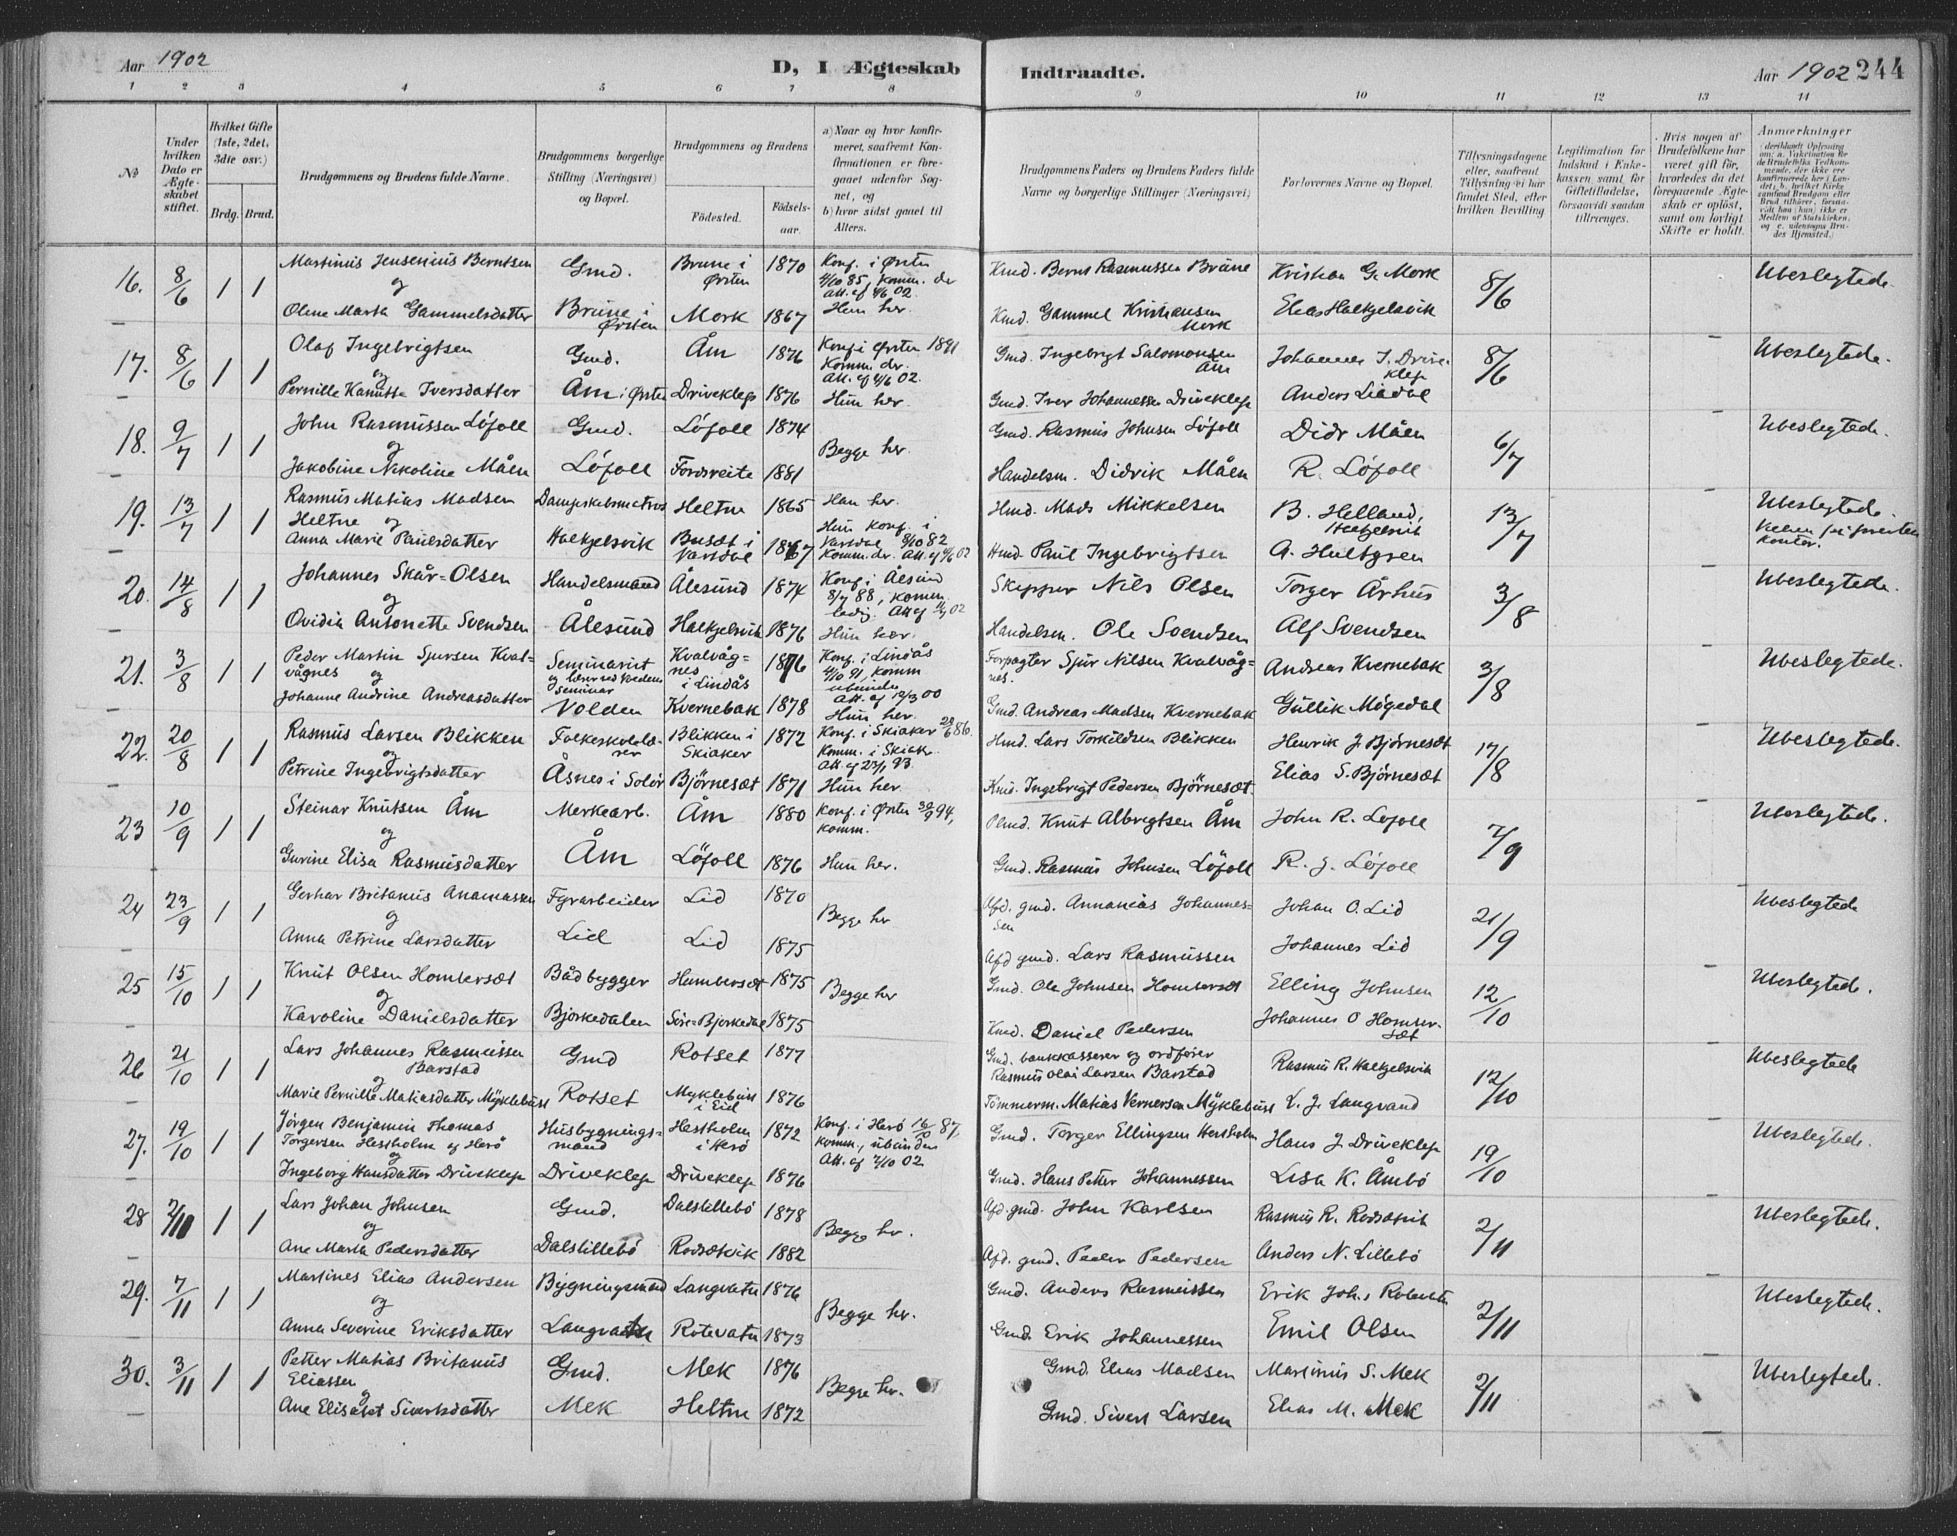 Aar 1902
D, I Ægteskab
Indtraadte.
Aar 1902 244
1 2 3 4 5 6 7 8 9 10 11 12 13 14
No
Under hvilken Dato er Ægteskabet stiftet.
Hvilket Gifte (1ste, 2det, 3die osv.)
Brdg. Brud.
Brudgommens og Brudens fulde Navne.
Brudgommens borgerlige Stilling (Næringsvei) og Bopæl.
Brudgommens og Brudens
Fødested.
Fødselsaar.
a) Naar og hvor konfirmeret, saafremt Konfirmationen er foregaaet udenfor Sognet, og
b) hvor sidst gaaet til Alters.
Brudgommens Faders og Brudens Faders fulde Navne og borgerlige Stillinger (Næringsvei)
Forlovernes Navne og Bopæl.
Tillysningsdagene eller, saafremt Tillysning ei har fundet Sted, efter hvilken Bevilling
Legitimation for Indskud i Enkekassen samt for Giftetilladelse, forsaavidt saadan tiltrænges.
Hvis nogen af Brudefolkene har været gift før, hvorledes da det foregaaende Ægteskab er opløst, samt om lovligt Skifte er holdt.
Anmærkninger
16. 8/6 1 1 Martinus Jensenius Berntsen Gmd. Brune i Ørsten 1870 Konf. i Ørsten 4/10 85, komm. der Att. af 4/6 02. Kmd. Bernt Rasmussen Brune Kristian G. Mork 8/6 Ubeslegtede.
og
Oline Marta Gammelsdatter Brune i Ørsten Mork 1867 Hun her. Kmd. Gammel Kristiansen Mork Elias Halkjelsvik
17. 8/6 1 1 Olaf Ingebrigtsen Gmd. Åm 1876 Konf. i Ørsten 1891 Komm. der. Att. af 4/6 02. Gmd. Ingebrigt Salomonsen Åm Johannes I. Driveklep 8/6 Ubeslegtede.
og
Pernille Kanutta Iversdatter Åm i Ørsten Driveklep 1876 Hun her. Gmd. Iver Johannessen Driveklep Anders Liadal
18. 9/7 1 1 John Rasmussen Löfoll Gmd. Löfoll 1874 Begge her. Gmd. Rasmus Johnsen Löfoll Didr Måen 6/7 Ubeslegtede.
og
Jakobine Nikoline Måen Löfoll Fordsveite 1881 Handelsm. Didrik Måen R. Löfoll
19. 13/7 1 1 Rasmus Matias Madsen Heltne Dampskibsmatros Heltne 1865 Han her. Hmd. Mads Mikkelsen B. Helland, Halkjelsvik 13/7 Ubeslegtede.
og
Anna Marie Paulsdatter Halkjelsvik Busæt i Vartdal 1867 Hun konf. i Vartdal 8/10 82 Komm. der. Att. af 9/6 02 Hmd. Paul Ingebrigtsen A. Hultgren
20. 14/8 1 1 Johannes Skår-Olsen Handelsmand Ålesund 1874 Konf. i Ålesund 8/7 88, komm. ledig. Skipper Nils Olsen Torger Århus 3/8 Ubeslegtede.
og
Ovidia Antonette Svendsen Ålesund Halkjelsvik 1876 Hun her. Handelsm. Ole Svendsen Alf Svendsen
21. 3/8 1 1 Peder Martin Sjursen Kvalvågnes Seminarist Kvalvågnes i Lindås 1876 Konf. i Lindås 4/10 91, komm Att. af 12/3 00 Forpagter Sjur Nilsen Kvalvågnes. Andreas Kvernebak 3/8 Ubeslegtede.
og
Johanne Andrine Andreasdatter Volden Kvernebak 1878 Hun her. Gmd. Andreas Madsen Kvernebak Gullik Mögedal
22. 20/8 1 1 Rasmus Larsen Blikken Folkeskolelærer Blikken i Skiaker 1872 Konf. i Skiaker 29/6 86. Komm. i Skiak. Att. af 23/1 93 Hmd. Lars Torkildsen Blikken Henrik J. Björnesæt 17/8 Ubeslegtede.
og
Petrine Ingebrigtsdatter Åsnes i Solör Björnesæt 1871 Hun her. Kmd. Ingebrigt Pedersen Björnesæt. Elias S. Björnesæt
23 10/9 1 1 Steinar Knutsen Åm Merkearb. Åm 1880 Konf. i Ørsten 30/9 94, komm. Plmd. Knut Albrigtsen Åm John R. Löfoll 7/9 Ubeslegtede.
og
Gurine Elisa Rasmusdatter Åm Löfoll 1876 Hun her. Gmd. Rasmus Johnsen Löfoll R. J. Löfoll
24 23/9 1 1 Gerhar Britanus Ananiassen Fyrarbeider Lid 1870 Begge her Afd. gmd. Annanias Johannessen Johan O. Lid 21/9 Ubeslegtede
og
Anna Petrine Larsdatter Lid Lid 1875 Afd gmd. Lars Rasmussen Johannes Lid
25 15/10 1 1 Knut Olsen Hombersæt Bådbygger Humbersæt 1875 Begge her Gmd. Ole Johnsen Homberset Elling Johnsen 12/10 Ubeslegtede.
og
Karoline Danielsdatter Björkedalen Söre-Bjorkedal 1875 Kmd. Daniel Pedersen Johannes O Homberset
26 21/10 1 1 Lars Johannes Rasmussen Barstad Gmd Rotset 1877 Gmd. bankkasserer og ordförer Rasmus Olai Larsen Barstad Rasmus R. Halkjelsvik 12/10 Ubeslegtede
og
Marie Pernille Matiasdatter Myklebust Rotset Myklebust i Eid 1876 Tömmerm. Matias Vernersen Myklebust L. J. Langvand
27. 19/10 1 1 Jörgen Benjamin Thomas Torgersen Hestholm af Herö Husbygningsmand Hestholm i Herö 1872 Konf. i Herö 16/10 87, komm., ubunden Att. af 7/10 02 Gmd. Torger Ellingsen Hestholm Hans J. Driveklep 19/10 Ubeslegtede.
og
Ingeborg Hansdatter Driveklep Driveklep Driveklep 1876 Gmd. Hans Petter Johannessen Lisa K. Åmbö
28 2/11 1 1 Lars Johan Johnsen Gmd. Dalslillebö 1878 Begge her. Afd. gmd. John Karlsen Rasmus R. Rodsætvik 2/11 Ubeslegtede.
og
Ane Marta Pedersdatter Dalslillebö Rodsætvik 1882 Afd. gmd. Peder Pedersen Anders N. Lillebö
29. 7/11 1 1 Martines Elias Andersen Bygningsmand Langvatn 1876 Begge her. Gmd. Anders Rasmussen Erik Joh.s Rotevatn 2/11 Ubeslegtede.
og
Anna Severine Eriksdatter Langvatn Rotevatn 1873 Gmd. Erik Johannessen Emil Olsen
30. 3/11 1 1 Petter Matias Britanus Eliassen Gmd. Mek 1876 Begge her. Gmd Elias Madsen Martinus S. Mek 2/11 Ubeslegtede.
og
Ane Elisabet Sivertsdatter Mek Heltne 1872 Gmd. Sivert Larsen Elias M. Mek